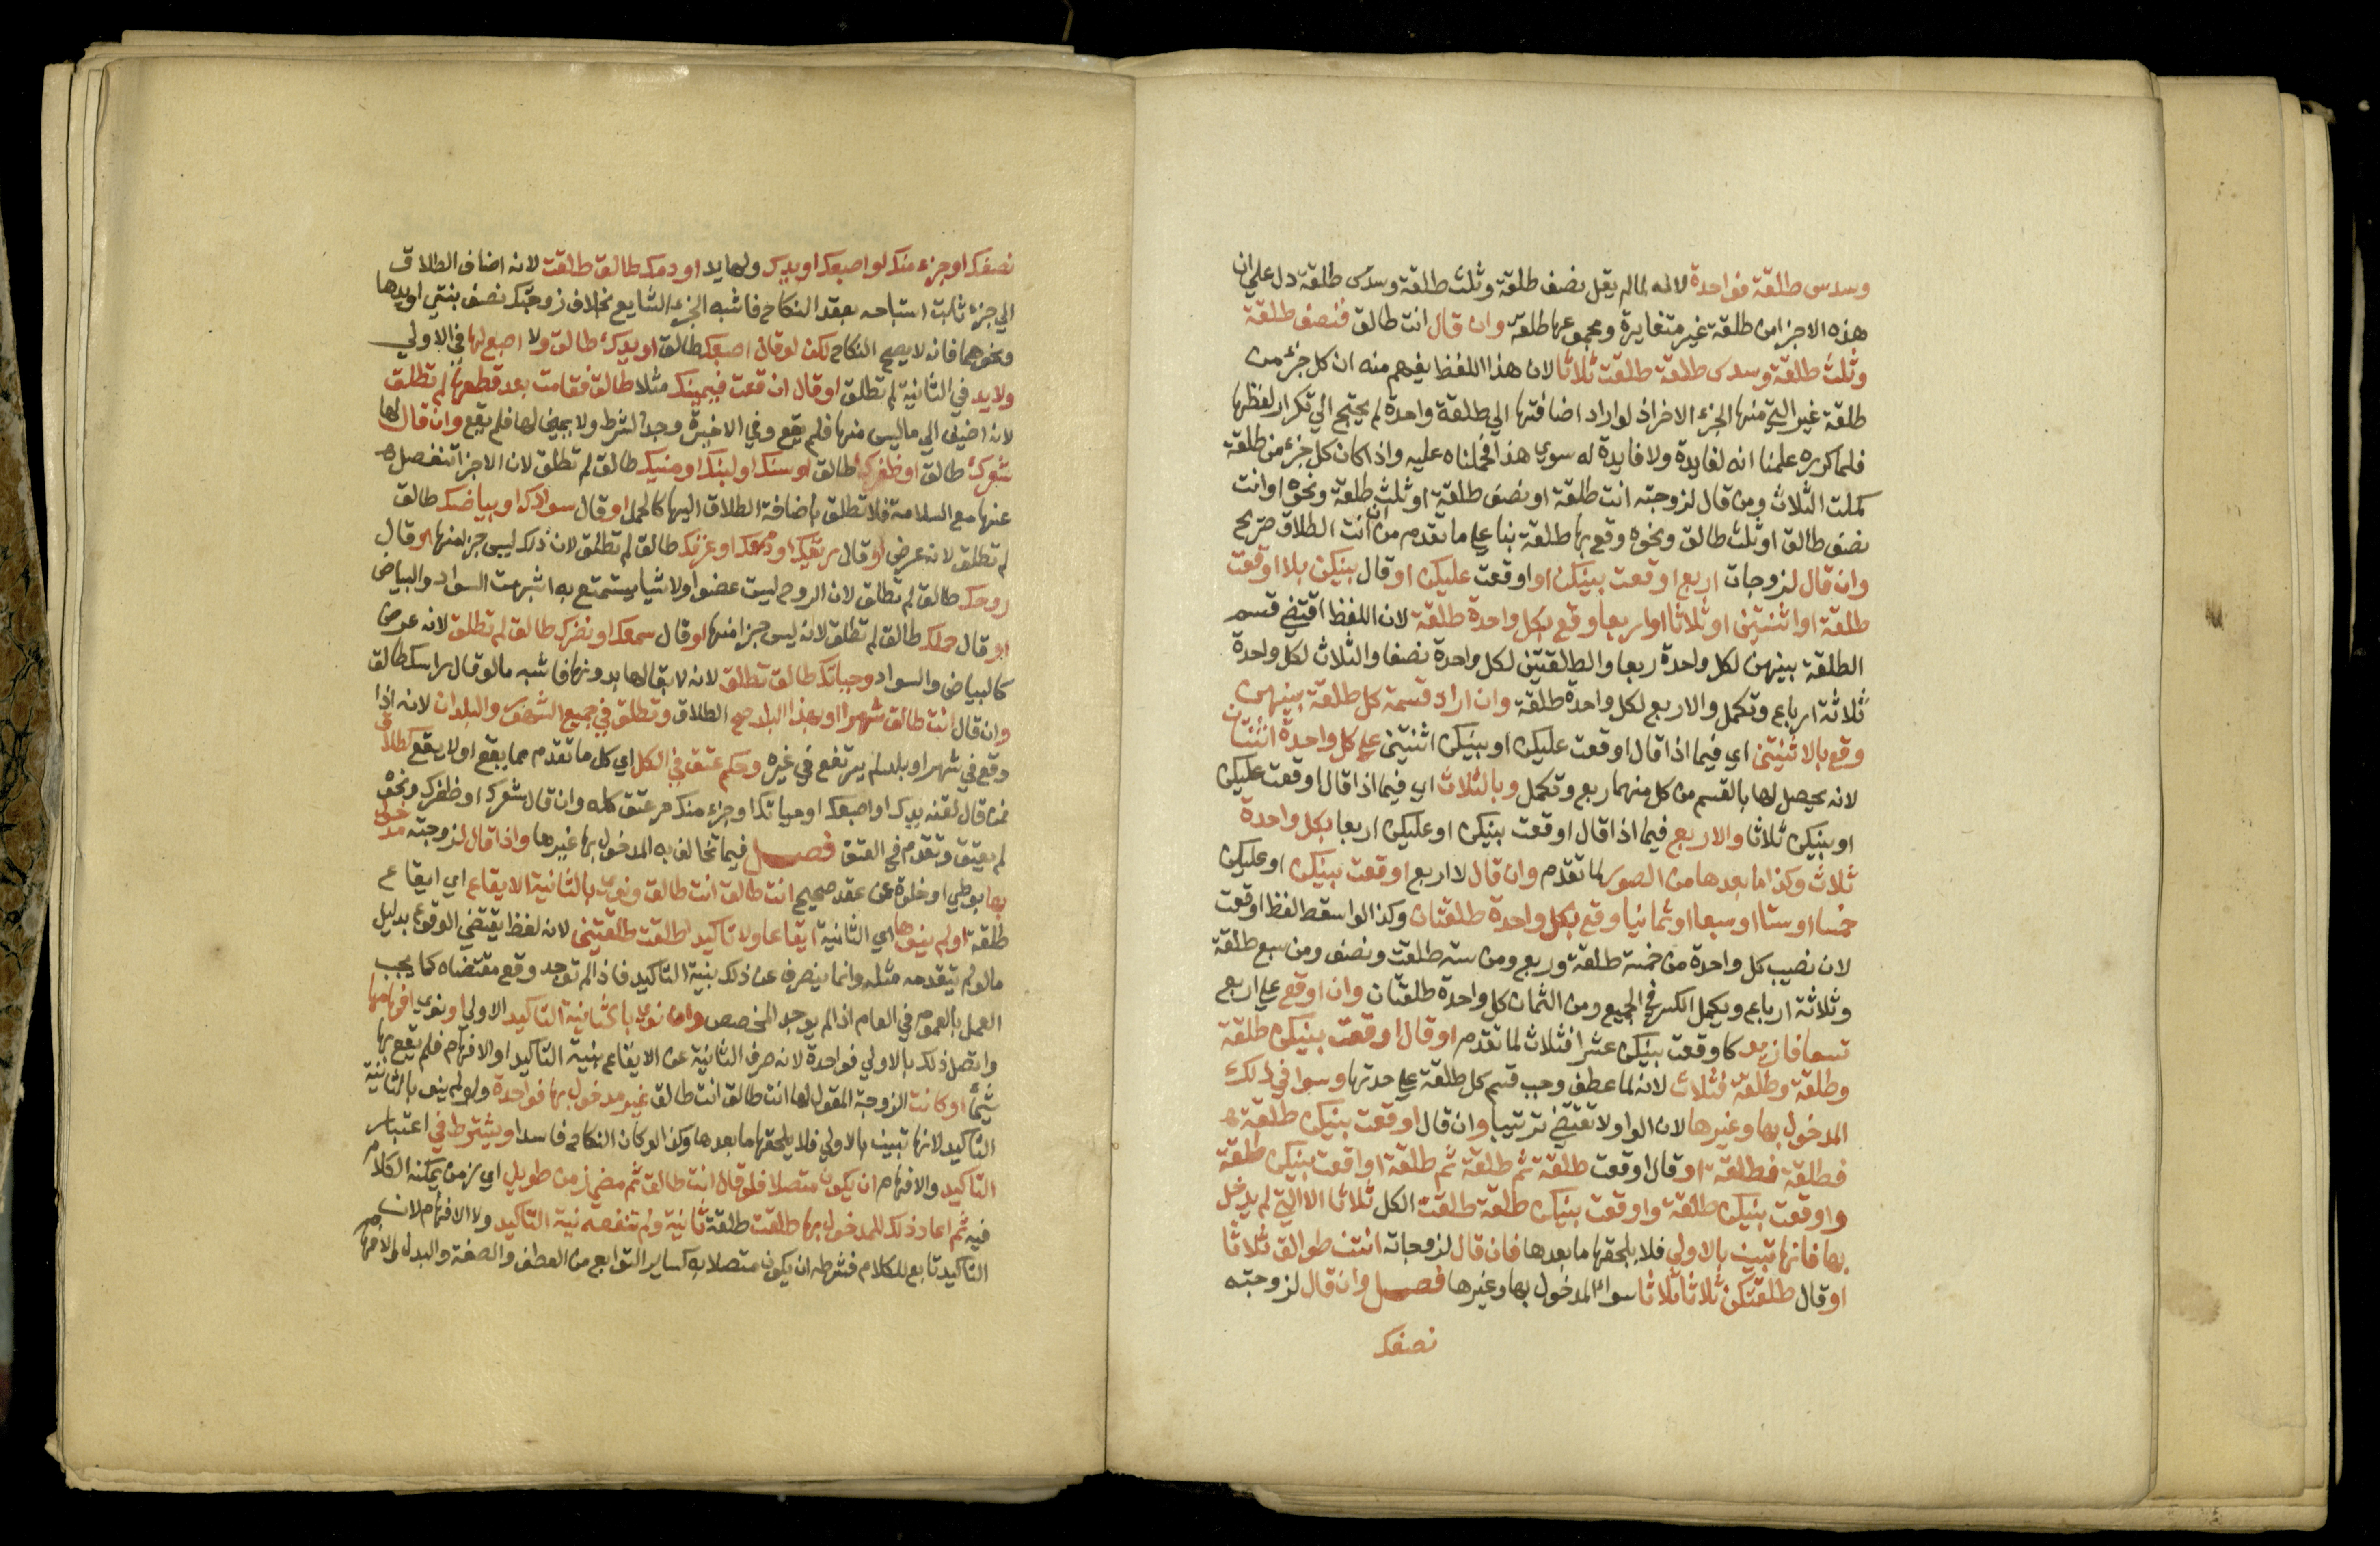 وسدس طلقة فواحدة لانه لما لم يقل نصف طلقة وثلث طلقة وسدس طلقة دل علي ان
هذه الاجزا من طلقة غير متغايرة ومجموعها طلقة وان قال انت طالق فنصف طلقة
وثلث طلقة وسدس طلقة طلقت ثلاثا لان هذا اللفظ يفهم منه ان كل جزء من
طلقة غير التي منها الجزء الاخر اذ لو اراد اضافتها الي طلقة واحدة لم يحتج الي تكرار لفظها
فلما كرره علمنا انه لفايدة ولا فايدة له سوي هذا فحملناه عليه واذا كان كل جزء من طلقة
كملت الثلاث ومن قال لزوجته انت طلقة او نصف طلقة او ثلث طلقة ونحوه او انت
نصف طالق او ثلث طالق ونحوه وقع بها طلقة بنا علي ما تقدم من ان انت الطلاق صريح
وان قال لزوجات اربع اوقعت بينكن او اوقعت عليكن او قال بينكن بلا اوقعت
طلقة او اثنتين او ثلاثا او اربعا وقع بكل واحدة طلقة لان اللفظ اقتضي قسم
الطلقة بينهن لكل واحدة ربعا والطلقتين لكل واحدة نصفا والثلاث لكل واحدة
ثلاثة ارباع وتكمل والاربع لكل واحدة طلقة وان اراد قسمة كل طلقة بينهن
وقع بالاثنتين اي فيما اذا قال اوقعت عليكن او بينكن اثنتين علي كل واحدة اثنتان
لانه يحصل لها بالقسم من كل منهما ربع وتكمل وبالثلاث اي فيما اذا قال اوقعت عليكن
او بينكن ثلاثا والاربع فيما اذا قال اوقعت بينكن او عليكن اربعا بكل واحدة
ثلاث وكذا ما بعدها من الصور لما تقدم وان قال لاربع اوقعت بينكن او عليكن
خمسا او ستا او سبعا او ثمانيا وقع بكل واحدة طلقتان وكذا لو اسقط لفظ اوقعت
لان نصيب كل واحدة من خمسة طلقة وربع ومن ستة طلقت ونصف ومن سبع طلقة
وثلاثة ارباع ويكمل الكسر في الجميع ومن الثمان كل واحدة طلقتان وان اوقع علي اربع
تسعا فازيد كاوقعت بينكن عشرا فثلاث لما تقدم او قال اوقعت بينكن طلقة
وطلقة وطلقة فثلاث لانه لما عطف وجب قسم كل طلقة علي حدتها وسوا في ذلك
المدخول بها وغيرها لان الواو لا تقتضي ترتيبا وان قال اوقعت بينكن طلقة
فطلقة فطلقة او قال اوقعت طلقة ثم طلقة ثم طلقة او اوقعت بينكن طلقة
واوقعت بينكن طلقة واوقعت بينكن طلقة طلقت الكل ثلاثا الا التي لم يدخل
بها فانها تبين بالاولي فلا يلحقها ما بعدها فان قال لزوجاته انتن طوالق ثلاثا
او قال طلقتكن ثلاثا ثلاثا سوا المدخول بها وغيرها فصل وان قال لزوجته
نصفك
نصفك او جزء منك او اصبعك او يدك ولها يد او دمك طالق طلقت لانه اضاف الطلاق
الي جزء ثابت استباحه بعقد النكاح فاشبه الجزء الشايع بخلاف زوجتك نصف بنتي او يدها
ونحوهما فانه لا يصح النكاح لكن لو قال اصبعك طالق او يدك طالق ولا اصبع لها في الاولي
ولا يد في الثانية لم تطلق او قال ان قمت فيمينك مثلا طالق فقامت بعد قطعها لم تطلق
لانه اضيف الي ما ليس منها فلم يقع وفي الاخيرة وجد الشرط ولا يمين لها فلم يقع وان قال لها
شعرك طالق او ظفرك طالق او سنك او لبنك او منيك طالق لم تطلق لان الاجزا تنفصل
عنها مع السلامة فلا تطلق باضافة الطلاق اليها كالحمل او قال سوادك او بياضك طالق
لم تطلق لانه عرض او قال ريقك او دمعك او عرقك طالق لم تطلق لان ذلك ليس جزا منها او قال
روحك طالق لم تطلق لان الروح ليست عضوا ولا شيا يستمتع به اشبهت السواد والبياض
او قال حملك طالق لم تطلق لانه ليس جزا منها او قال سمعك او نضرك طالق لم تطلق لانه عرض
كالبياض والسواد وحياتك طالق تطلق لانه لا بقا لها بدونها فاشبه ما لو قال راسك طالق
وان قال انت طالق شهرا او بهذا البلد صح الطلاق وتطلق في جميع الشهور والبلدان لانه اذا
وقع في شهر او بلد لم يرتفع في غيره وحكم عتق في الكل اي كل ما تقدم مما يقع او لا يقع كطلاق
فمن قال لقنه يدك او اصبعك او حياتك او جزء منك حر عتق كله وان قال شعرك او ظفرك ونحوه
لم يعتق وتقدم في العتق فصل فيما تخالف به المدخول بها غيرها واذا قال لزوجته مدخول
بها بوطي او خلوة عن عقد صحيح انت طالق انت طالق ونوي بالثانية الايقاع اي ايقاع
طلقة او لم ينوها اي الثانية ايقاعا ولا تاكيدا طلقت طلقتين لان لفظ يقتضي الوقوع بدليل
ما لو لم يتقدمه مثله وانما ينصرف عن ذلك بنية التاكيد فاذا لم توجد وقع مقتضاه كما يجب
العمل بالعموم في العام اذا لم يوجد المخصص وان نوي بالثانية التاكيد الاولي او نوي افهامها
واتصل ذلك بالاولي فواحدة لانه صرف الثانية عن الايقاع بنية التاكيد او الافهام فلم يقع بها
شيئا او كانت الزوجة المقول لها انت طالق انت طالق غير مدخول بها فواحدة ولو لم ينو بالثانية
التاكيد لانها تبين بالاولي فلا يلحقها ما بعدها وكذا لو كان النكاح فاسدا ويشترط في اعتبار
التاكيد والافهام ان يكون متصلا فلو قال انت طالق ثم مضي زمن طويل اي زمن يمكنه الكلام
فيه ثم اعاد ذلك للمدخول بها طلقت طلقة ثانية ولم تنفعه نية التاكيد ولا الافهام لان
التاكيد تابع للكلام فشرطه ان يكون متصلا به كساير التوابع من العطف والصفة والبدل والافهام